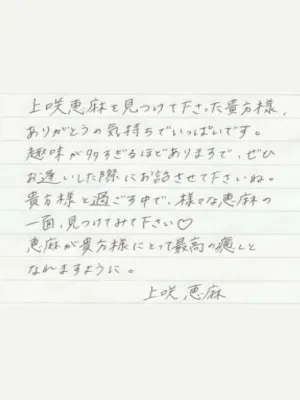 上咲恵麻を見つけて下さった貴方様、
ありがとうの気持ちでいっぱいです。
趣味が多すぎるほどありますで、ぜひ
お逢いした際にお話させて下さいね。
貴方様と過ごす中で、様々な恵麻の
一面、見つけてみて下さい♡
恵麻が貴方様にとって最高の癒しと
なれますように。
上咲 恵麻